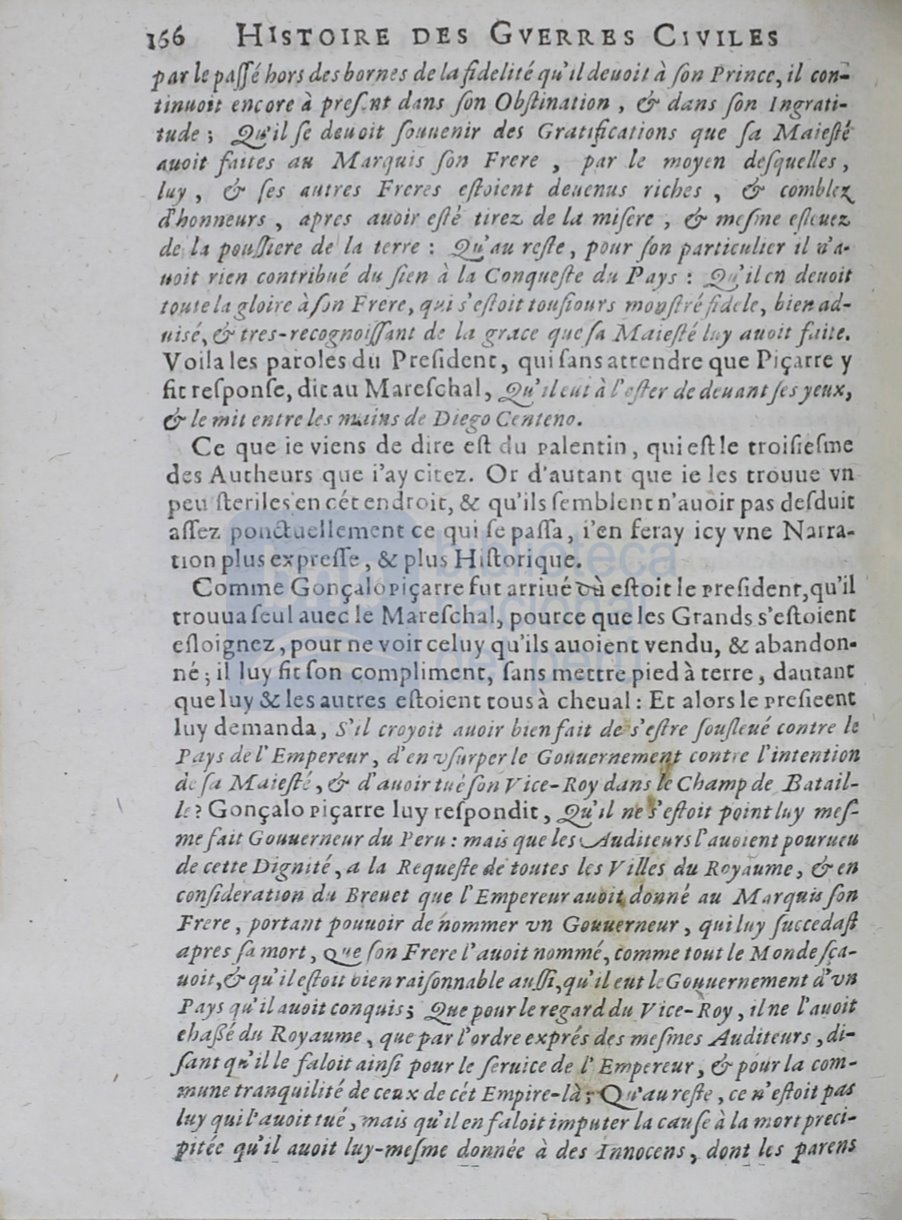 166 HISTOIRE DES GVERRES CIVILES
par le passé hors des bornes de la fidelité qu'il deuoit à son Prince, il con-
tinuoit encore à pres.nt dans son Obstination, & dans son Ingrati-
tude; Qu'il se deuoit souuenir des Gratifications que sa Maiesté
auoit faites au Marquis son Frere, par le moyen desquelles,
luy, & ses autres Freres estoient deuenus riches, & comblez
d'honneurs, apres auoir esté tirez de la misere, & mesme esleuez
de la poussiere de la terre: Qu'au reste, pour son particulier il n'a-
uoit rien contribué du sien à la Conqueste du Pays: Qu'il en deuoit
toute la gloire à son Frere, qui s'estoit tousiours monstré fidele, bien ad-
uisé, & tres-recognoissant de la grace que sa Maiesté luy auoit faite.
Voila les paroles du President, qui sans attendre que Piçarre y
fit response, dit au Mareschal, Qu'il eut à l'oster de deuant ses yeux,
& le mit entre les mains de Diego Centeno.
Ce que ie viens de dire est du Palentin, qui est le troisiesme
des Autheurs que i'ay citez. Or d'autant que ie les trouue vn
peu steriles en cét endroit, & qu'ils semblent n'auoir pas desduit
assez ponctuellement ce qui se passa, i'en feray icy vne Narra-
tion plus expresse, & plus Historique.
Comme Gonçalo Piçarre fut arriué où estoit le President, qu'il
trouua seul auec le Mareschal, pource que les Grands s'estoient
esloignez, pour ne voir celuy qu'ils auoient vendu, & abandon-
né; il luy fit son compliment, sans mettre pied à terre, dautant
que luy & les autres estoient tous à cheual: Et alors le Presieent
luy demanda, S'il croyoit auoir bien fait de s'estre sousleué contre le
Pays de l'Empereur, d'en vsurper le Gouuernement contre l'intention
de sa Maiesté, & d'auoir tué son Vice-Roy dans le Champ de Batail-
le? Gonçalo Piçarre luy respondit, Qu'il ne s'estoit point luy mes-
me fait Gouuerneur du Peru: mais que les Auditeurs l'auoient pourueu
de cette Dignité, a la Requeste de toutes les Villes du Royaume, & en
consideration du Breuet que l'Empereur auoit donné au Marquis son
Frere, portant pouuoir de nommer vn Gouuerneur, qui luy succedast
apres sa mort, Que son Frere l'auoit nommé, comme tout le Monde sça-
uoit, & qu'il estoit bien raisonnable aussi, qu'il eut le Gouuernement d'vn
Pays qu'il auoit conquis; Que pour le regard du Vice-Roy, il ne l'auoit
chassé du Royaume, que par l'ordre exprés des mesmes Auditeurs, di-
sant qu'il le faloit ainsi pour le seruice de l'Empereur, & pour la com-
mune tranquilité de ceux de cét Empire-là; Qu'au reste, ce n'estoit pas
luy qui l'auoit tué, mais qu'il en faloit imputer la cause à la mort preci-
pitée qu'il auoit luy-mesme donnée à des Innocens, dont les parens
biblioteca
nacional
del perú